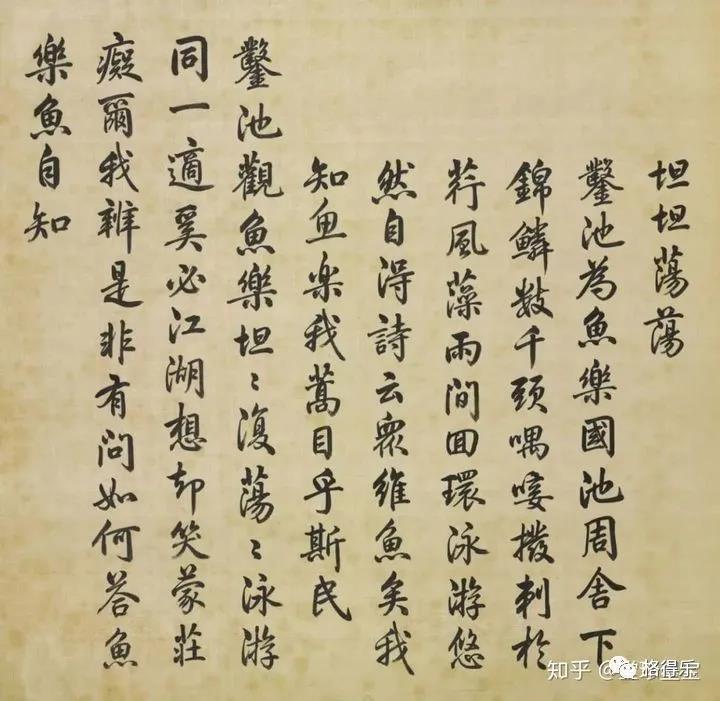 坦坦蕩蕩
鑿池為魚樂國池周舍下
錦鱗數千頭喁唼撥刺於
荇風藻雨間回環泳游悠
然自得詩云眾維魚矣我
知魚樂我蒿目乎斯民
鑿池觀魚樂坦〻復蕩〻泳游
同一適奚必江湖想却笑蒙莊
癡爾我辨是非有問如何答魚
樂魚自知
知乎 @
格得乐